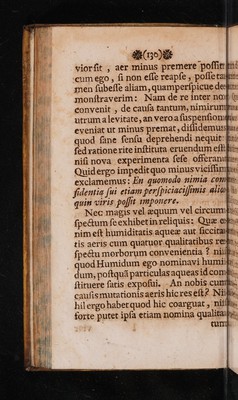 (130)
vior sit, aer minus premere possit:
cum ego, si non esse reapse, posse ta-
men subesse aliam, quam perspicue de-
monstraverim: Nam de re inter nos
convenit, de causa tantum, nimirum
utrum a levitate, an vero a suspensione
eveniat ut minus premat, dissidemus
quod sane sensu deprehendi nequit
sed ratione rite instituta eruendum est:
nisi nova experimenta sese offerant
Quid ergo impedit quo minus vicissim
exclamemus: En quomodo nimia con-
fidentia sui etiam perspicacissimis alio-
quin viris possit imponere.
Nec magis vel æquum vel circum-
spectum se exhibet in reliquis: Quæ e-
nim est humiditatis aqueæ aut siccita-
tis aeris cum quatuor qualitatibus re-
spectu morborum convenientia? ni
quod Humidum ego nominavi humi-
dum, postquã particulas aqueas id con-
stituere satis exposui. An nobis cum
causis mutationis aeris hic res est? Ni-
hil ergo habet quod hic coarguat, nisi
forte putet ipsa etiam nomina qualita-
tum